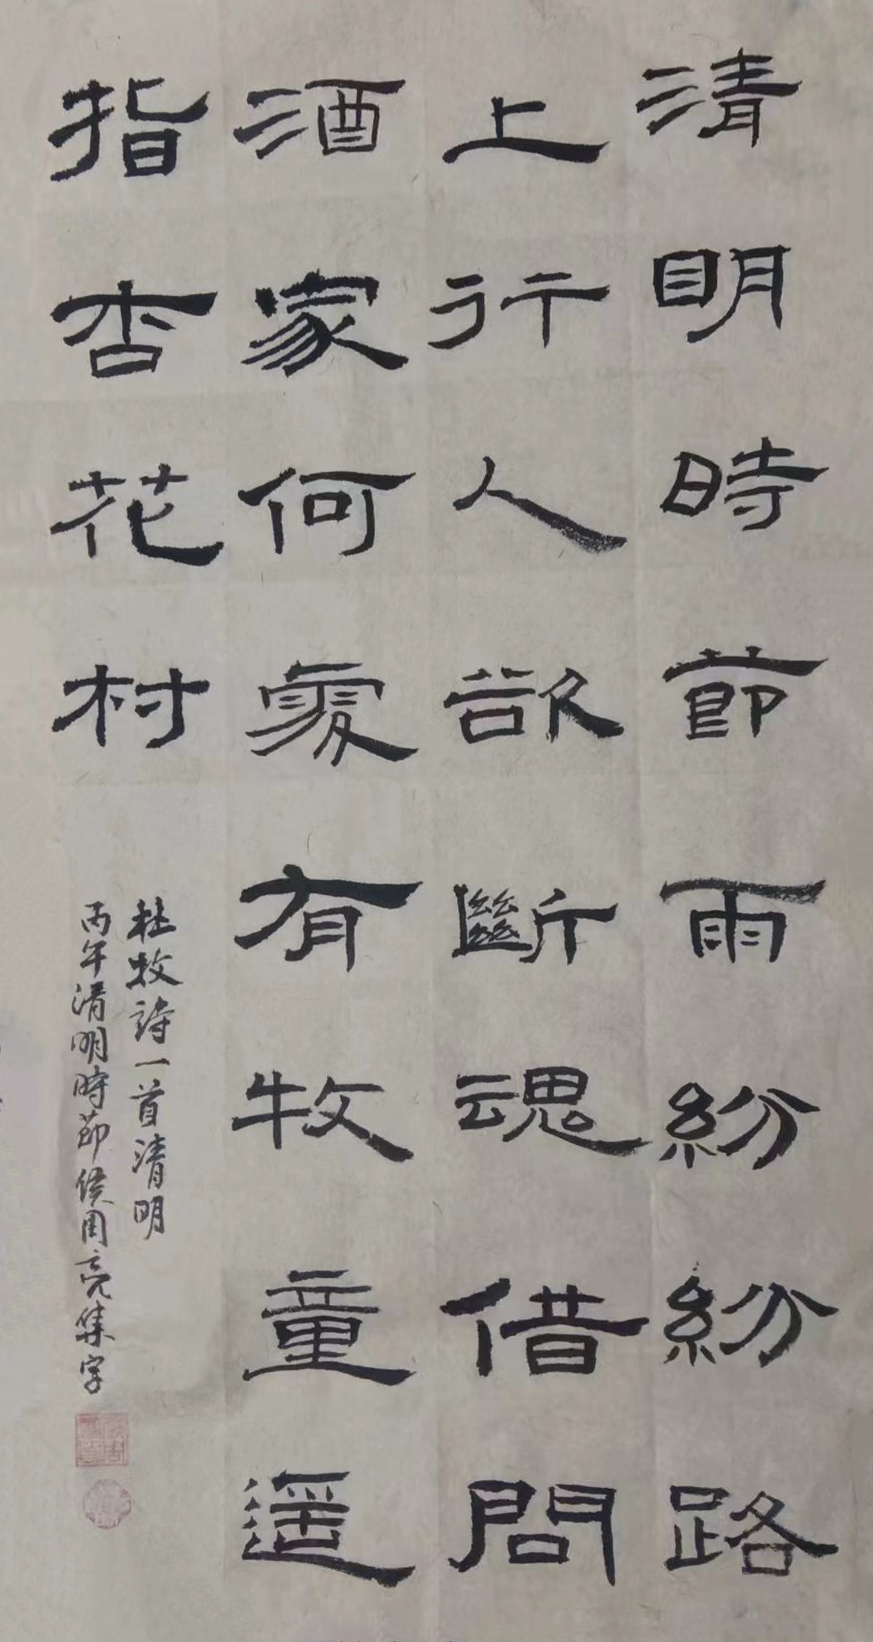 清明時節雨紛紛路
上行人欲斷魂借問
酒家何處有牧童遥
指杏花村
杜牧詩一首清明
丙午清明時節侯周亮集字